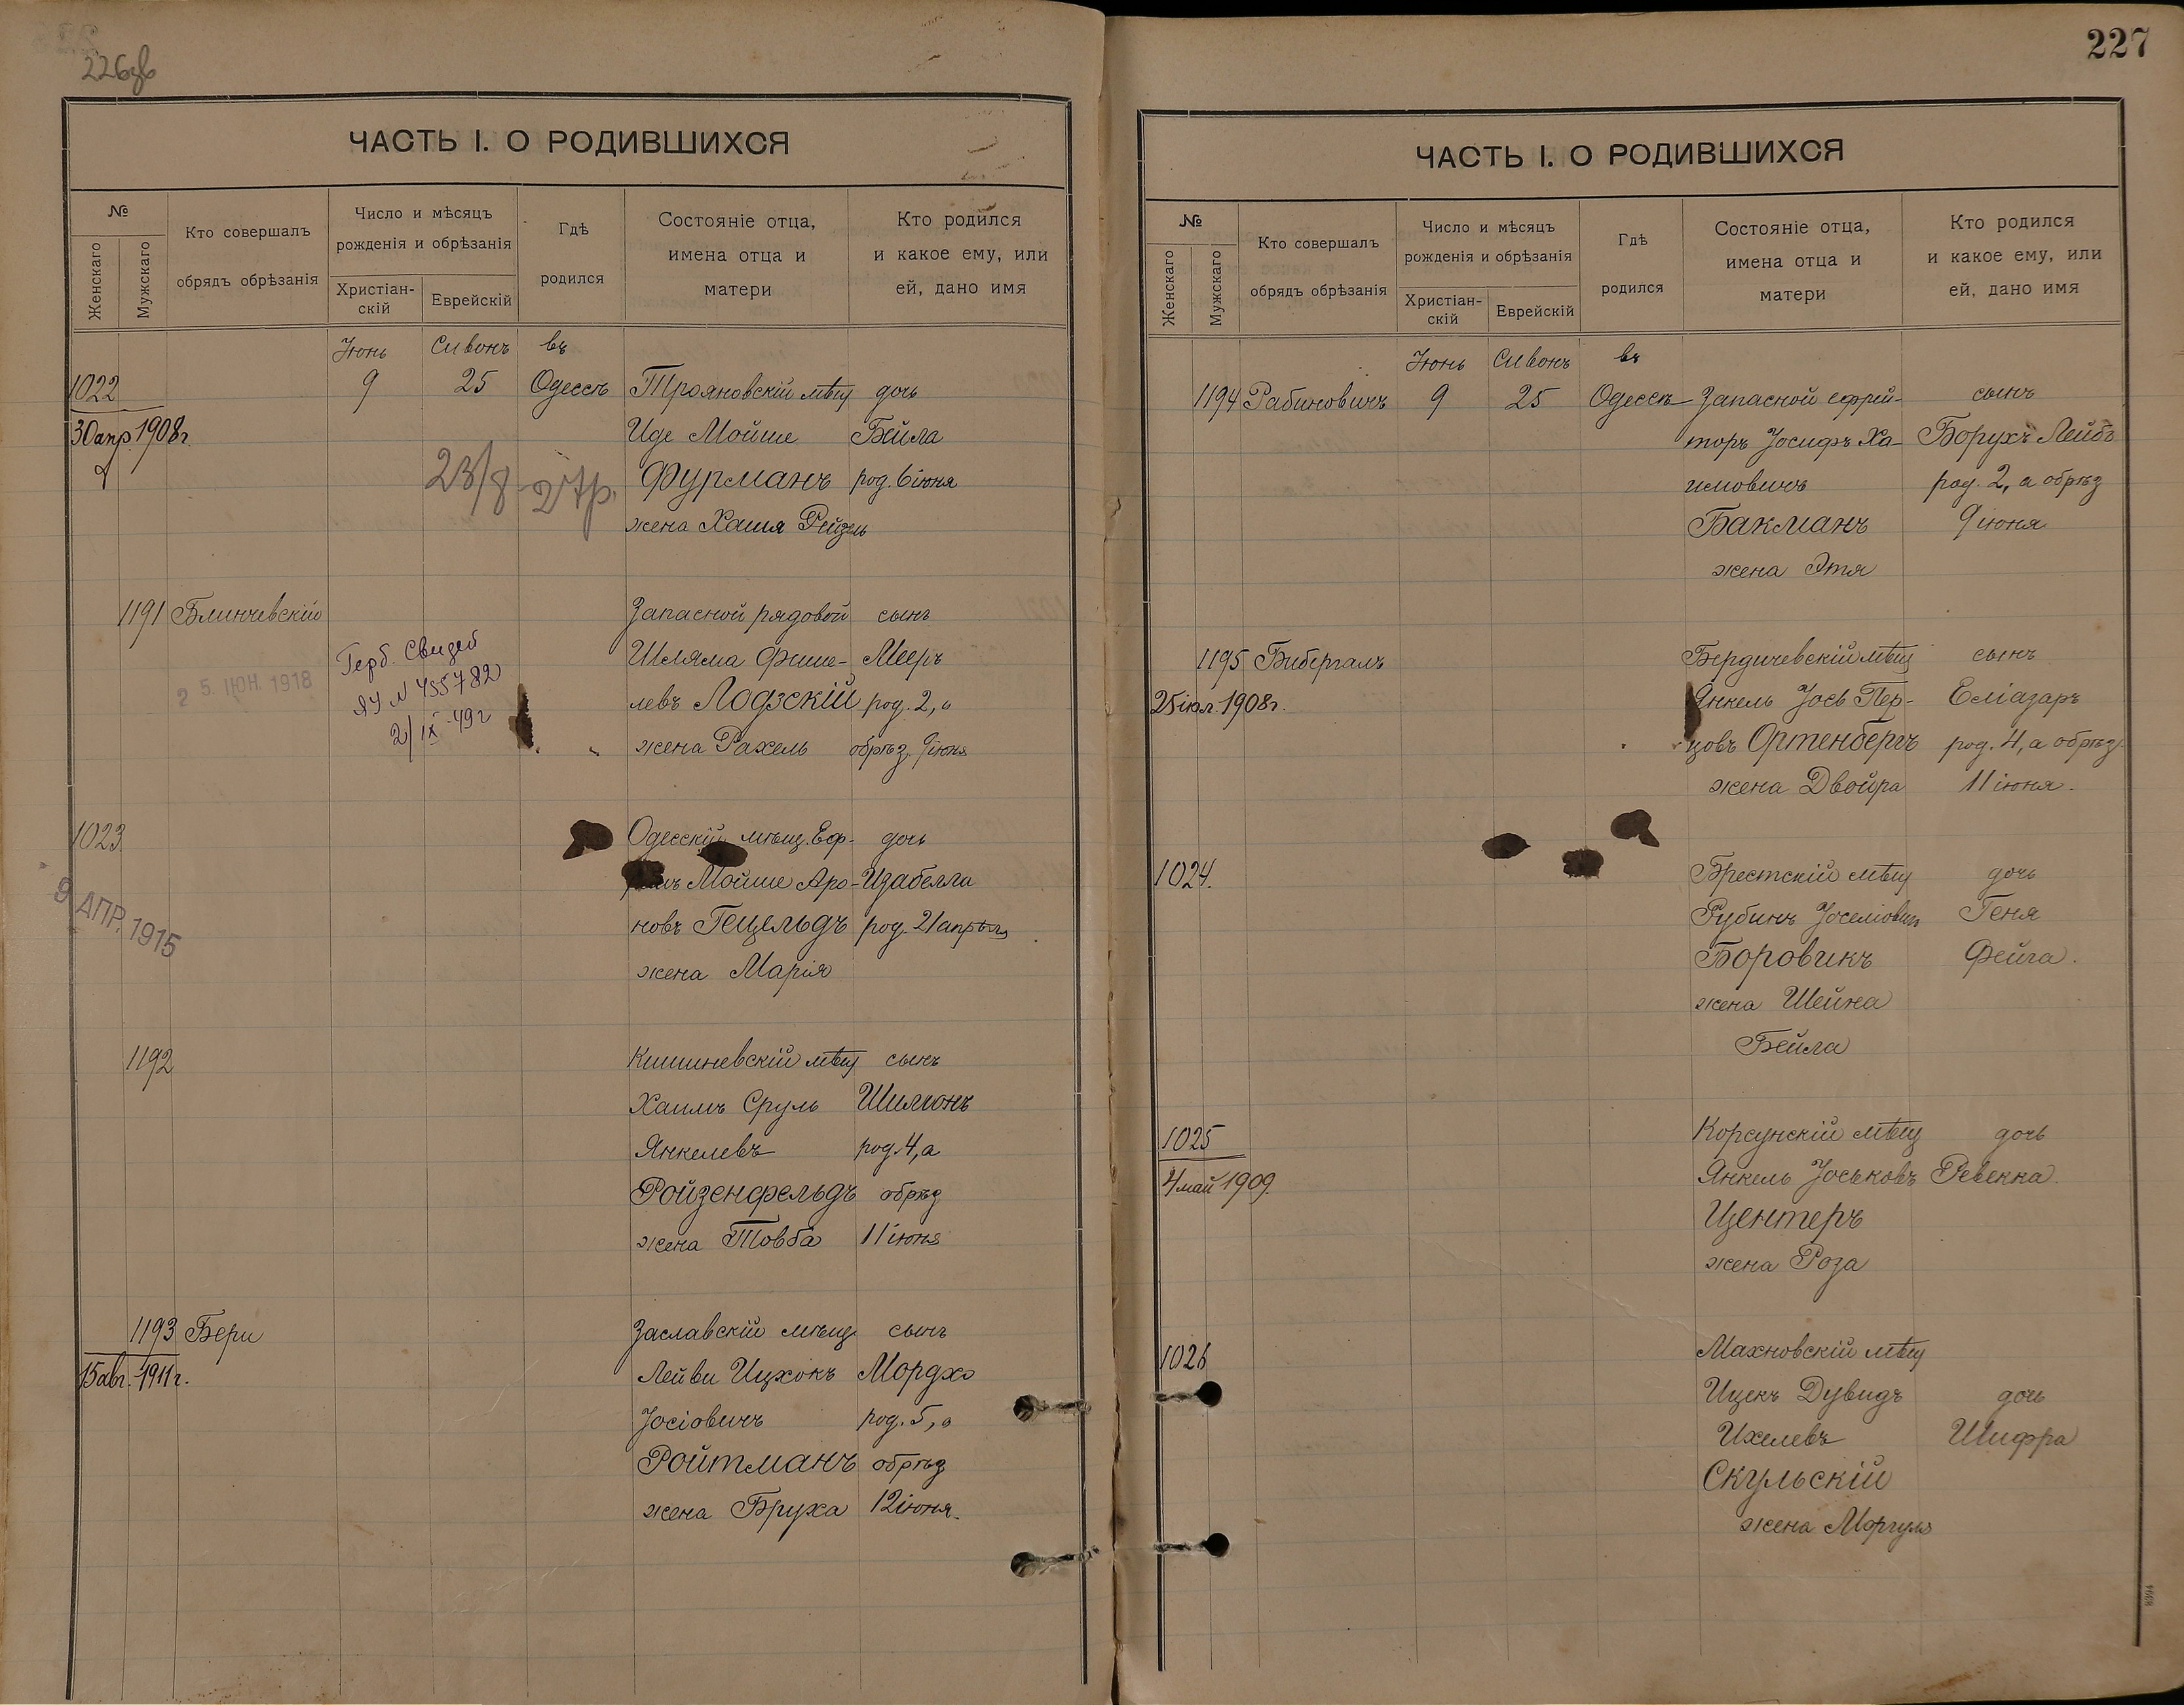 226зв
ЧАСТЬ I. О РОДИВШИХСЯ
№
Женскаго
Мужскаго
Кто совершалъ
обрядъ обрѣзанія
Число и мѣсяцъ
рожденія и обрѣзанія
Христіан-
скій
Еврейскій
Гдѣ
родился
Состояніе отца,
имена отца и
матери
Кто родился
и какое ему, или
ей, дано имя
Іюнь Сивонъ въ
1022 9 25 Одессѣ Трояновскій мѣщ дочь
30 апр. 1908г. Иде Мойше Бейла
23/8 Фурманъ род. 6 іюня
жена Хаия Рейзель
1191 Блинчевскій Запасной рядовой сынъ
Шляма Фише- Мееръ
левъ Лодзскій род. 2, а
жена Рахель обрѣз. 9 іюня
2 5. ІЮН. 1918
Герб. Свидеб
ЯУ N 455782
2/IX-49г
1023 Одесскій мѣщ. Еф-дочь
Мойше Аро-Изабелла
новъ Гецельдъ род. 21 апрѣля
жена Марія
9 АПР. 1915
1192 Кишиневскій мѣщ сынъ
Хаимъ Сруль Шимонъ
Янкелевъ род. 4, а
Ройзенфельдъ обрѣз
жена Товба 11 іюня
1193 Бери Заславскій мѣщ сынъ
15 авг. 1911г. Лейви Ицхокъ Мордхо
Іосіовичъ род. 5, а
Ройтманъ обрѣз
жена Бруха 12 іюня.
227
ЧАСТЬ I. О РОДИВШИХСЯ
№
Женскаго
Мужскаго
Кто совершалъ
обрядъ обрѣзанія
Число и мѣсяцъ
рожденія и обрѣзанія
Христіан-
скій
Еврейскій
Гдѣ
родился
Состояніе отца,
имена отца и
матери
Кто родился
и какое ему, или
ей, дано имя
Іюнь Сивонъ въ
1194 Рабиновичъ 9 25 Одессѣ Запасной ефрей- сынъ
торъ Іосифъ Ха- Борухъ Лейбъ
имовичъ род. 2, а обрѣз
Бакманъ 9 іюня
жена Этя
1195 Бибергалъ Бердичевскій мѣщ сынъ
25 іюл. 1908г. Янкель Іось Пер- Еліазаръ
цовъ Ортенбергъ род. 4, а обрѣз
жена Двойра 11 іюня.
1024. Брестскій мѣщ дочь
Рубинъ Іоселіовичъ Геня
Боровикъ Фейга.
жена Шейна
Бейла
1025 Корсунскій мѣщ дочь
4 май 1909. Янкель Іоськовъ Ревекка.
Центеръ
жена Роза
1026 Махновскій мѣщ
Ицекъ Дувидъ дочь
Ихелевъ Шифра
Скульскій
жена Моргуля